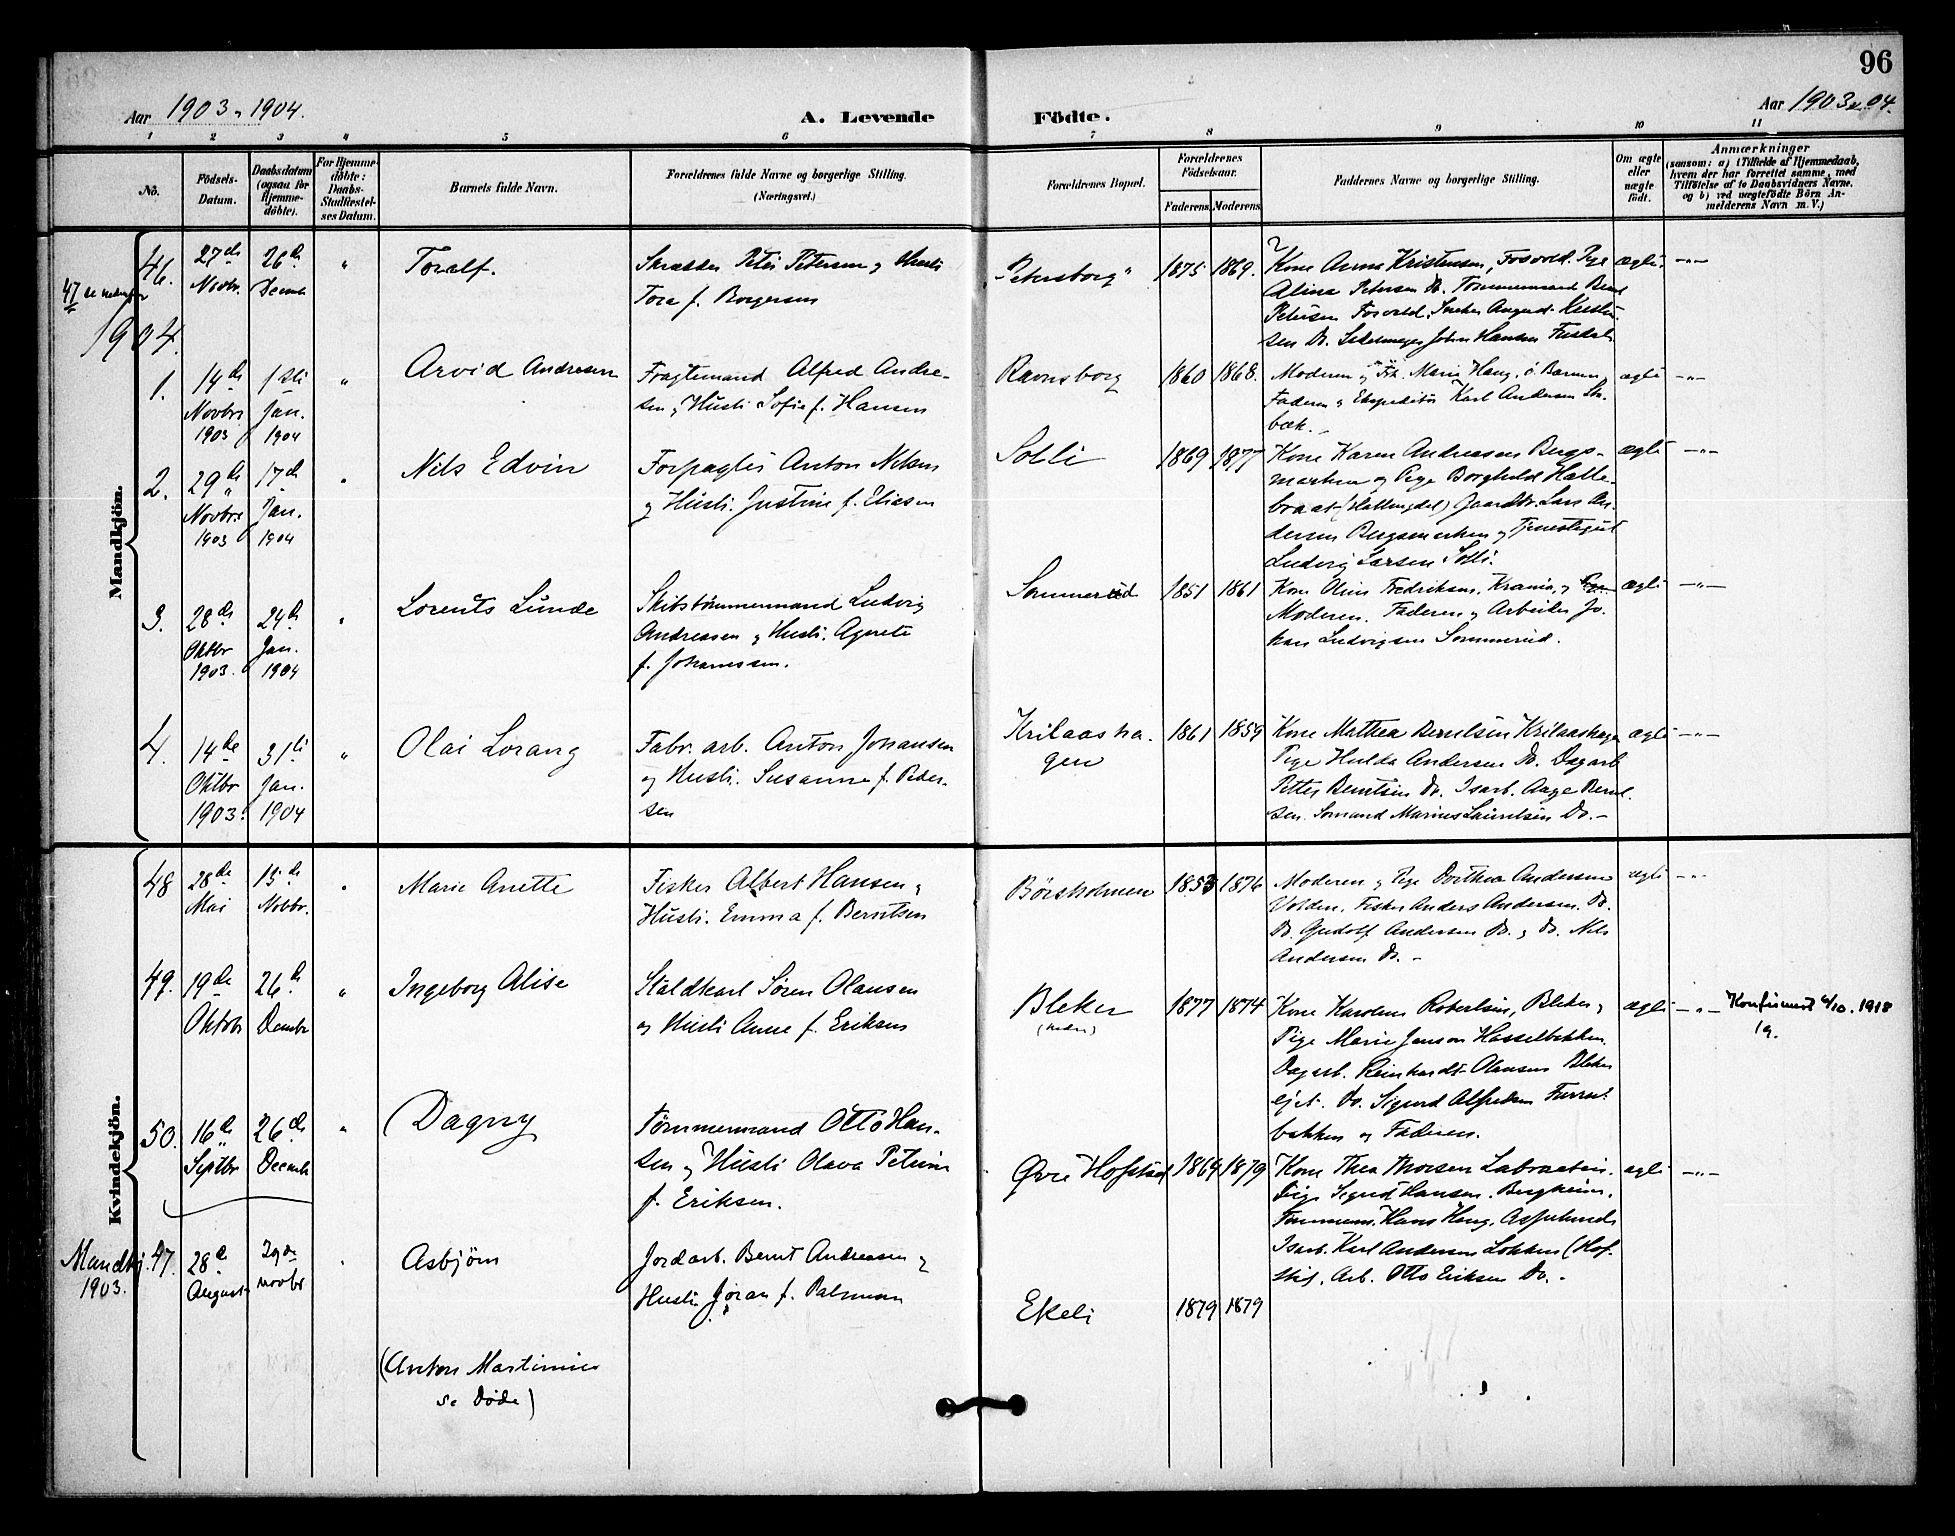 96
Aar 1903 & 1904.
A. Levende Födte.
Aar 1903 & 04.
1 2 3 4 5 6 7 8 9 10 11
No.
Födsels-
Datum.
Daabsdatum
(ogsaa for
Hjemme-
döbte).
For Hjemme-
döbte:
Daabs-
Stadfæstel-
ses Datum.
Barnets fulde Navn.
Forældrenes fulde Navne og borgerlige Stilling.
(Næringsvei.)
Forældrenes Bopæl.
Forældrenes
Födselsaar.
Faderens. Moderens.
Faddernes Navne og borgerlige Stilling.
Om ægte
eller
uægte
födt.
Anmærkninger
(saasom: a) i Tilfælde af Hjemmedaab,
hvem der har forrettet samme, med
Tilföielse af to Daabsvidners Navne,
og b) ved uægtefödte Börn An-
melderens Navn m. V.)
Mandkjön.
46.
27de
Novbr.
26de
Decemb
"
Toralf.
Skrædder Peter Petersen & Hustru
Tora f. Borgersen
"Petersborg"
1875 1869.
Kone Anna Kristensen, Fosvold. Pige
Alina Petersen Do. Tømmermand Bernt
Petersen Fosvold. Snekker August Kristen-
sen Do. Johan Hansen
ægte
-"-
47 se nedenfor
1904.
1.
14de
Novbr.
1903
1ste
Jan.
1904
"
Arvid Andresen
Fragtemand Alfred Andre-
sen & Hustru Sofie f. Hansen
Ravnsborg
1860 1868.
Moderen & Frk. Marie Haug,
Faderen & Ekspeditør Karl Andersen
bæk.
ægte
-"-
2.
29de
Novbr.
1903
17de
Jan.
1904
"
Nils Edvin
Forpagter Anton Nilsen
& Hustru. Justine f. Eliasen
Solli
1869 1877
Kone Karen Andreasen Bergs-
marken og Pige Borghild Halle-
braat (Hallingdal) Gaardbr. Lars An-
dersen Bergsmarken & Tjenestegut
Ludvig Larsen Solli.
ægte
-"-
3.
28de
Oktbr
1903.
24de
Jan.
1904
"
Lorents Lunde
Skibstömmermand Ludvig
Andreassen & Hustru. Agnete
f. Johannessen.
Sommerud
1851 1861
Kone Oline Fredriksen. Krania, &
Moderen. Faderen & Arbeider Jo-
han Ludvigsen Sommerud.
ægte
-"-
4.
14de
Oktbr
1903.
31te
Jan.
1904
"
Olai Lorang
Fabr. arb. Anton Johansen
og Hustru. Susanne f. Peder-
sen
Krilaasha-
gen
1861 1859
Kone Mathea Berntsen Krilaashagen
Pige Hulda Andersen Do. Dagarb
Petter Berntsen Do. Isarb. Aage Bernt-
sen. Sømand Marius Lauritsen Do. -
ægte
-"-
Kvindekjön.
48
28de
Mai
15de
Novbr.
"
Marie Anette
Fisker Albert Hansen &
Hustru. Emma f. Berntsen
Börsholmen
1853 1876
Moderen & Pige Dorthea Andersen
Volden. Fisker Anders Andersen. Do.
Do. Gudolf Andersen Do. & Do. Nils
Andersen Do. -
ægte
-"-
49.
19de
Oktobr
26de
Decmbr
"
Ingeborg Alise
Staldkarl Sören Olausen
og Hustru Anne f. Eriksen
Bleker
(nedre)
1877 1874
Kone Karoline Robertsen, Bleker &
Pige Marie Jensen Hasselbakken.
Dagarb. Reinhardt Olausen Bleker
ejet. Do. Sigurd Alfredsen Furru-
bakken & Faderen.
ægte
-"-
Konfirmert 6/10. 1918
19.
50.
16de
Septbr
26de
Decemb
"
Dagny
Tömmermand Otto Han-
sen & Hustru Olava Petrine
f. Eriksen.
Øvre Hofstad
1869 1879
Kone Thea Thorsen
Pige Sigrid Hansen. Bergheim.
Tømmerm. Hans Haug.
Isarb. Karl Andersen Løkken (Hof-
stad. Arb. Otto Eriksen Do. -
ægte
-"-
Mandkj.
1903.
47.
28de
August
29de
novbr
"
Asbjörn
Jordarb. Bernt Andreasen &
Hustru Jöran f. Palmesen
Ekeli
1879 1879
(Anton Martinius
se Döde)